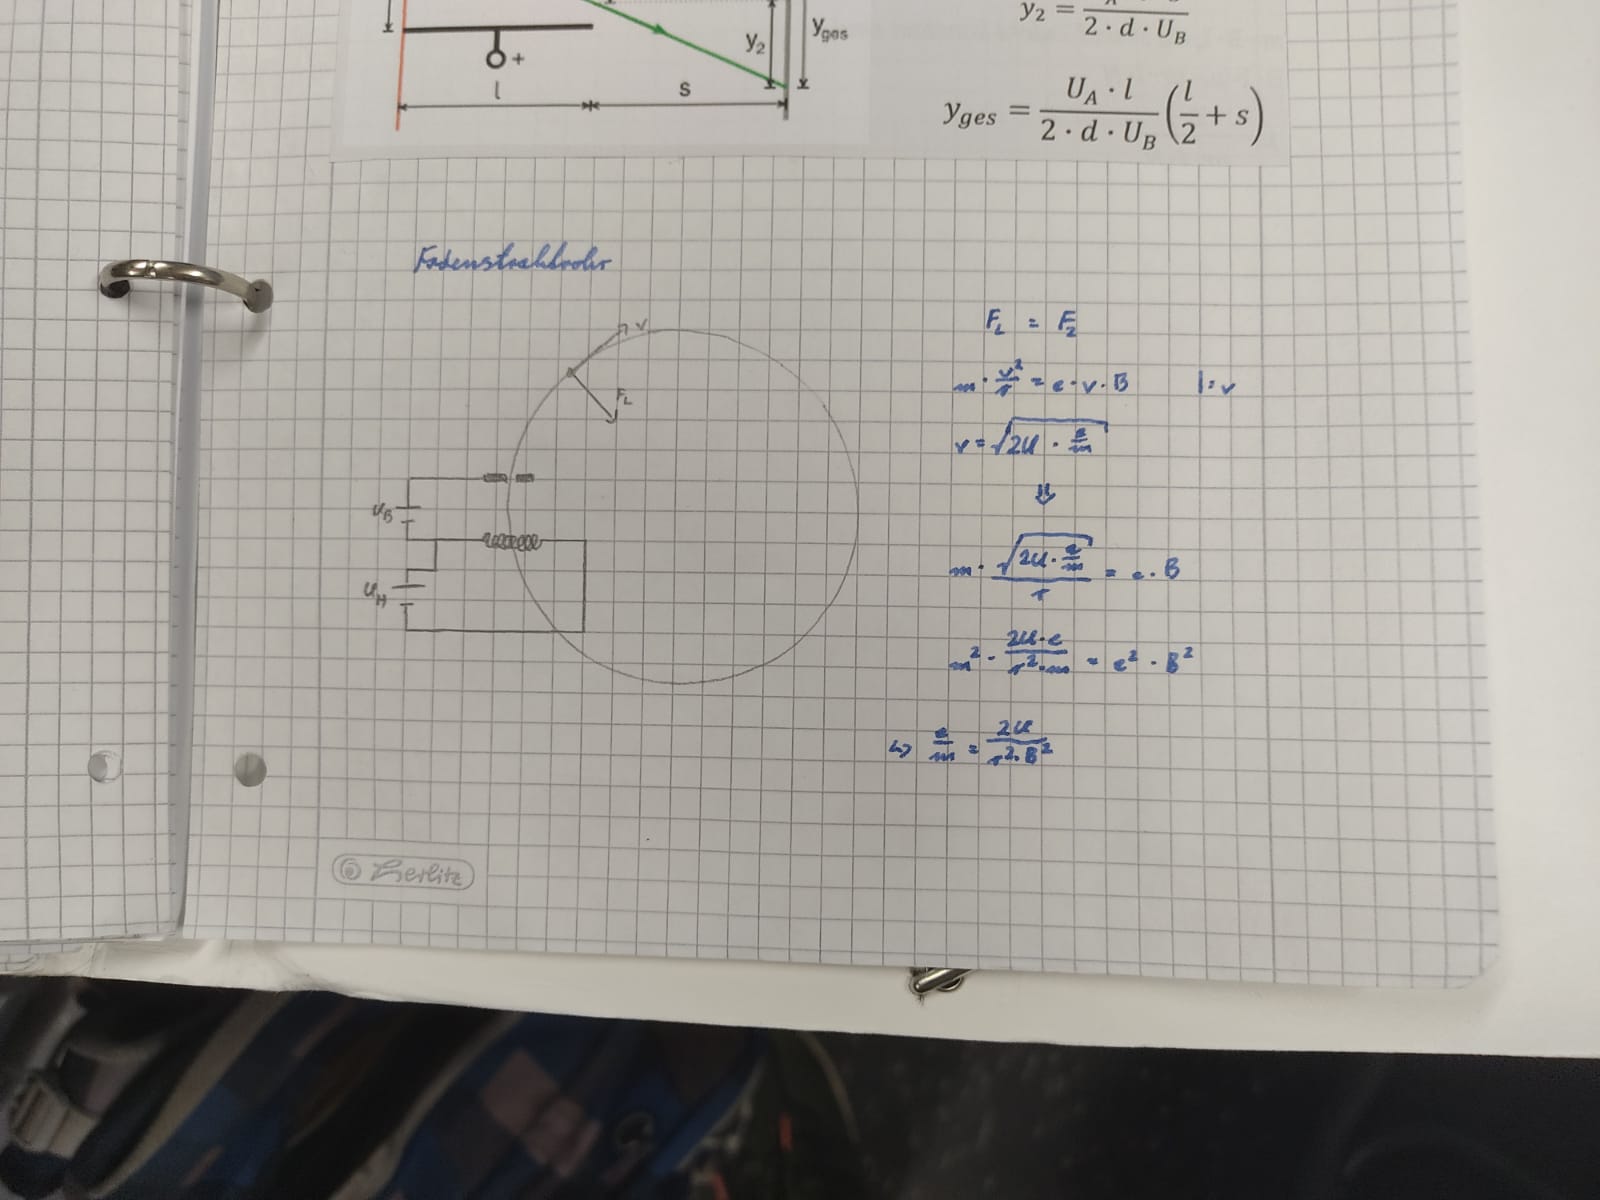 y₂ =
2 · d · U_B
y₂
y_ges
+
l
s
y_ges = U_A · l / 2 · d · U_B (l/2 + s)
Fadenstrahlrohr
v
F_L
U_B
U_H
F_L = F_Z
m · v²/r = e · v · B |: v
v = √(2U · e/m)
⇓
m · √(2U · e/m) / r = e · B
m² · 2U·e / r²·m = e² · B²
↳ e/m = 2U / r²·B²
Herlitz